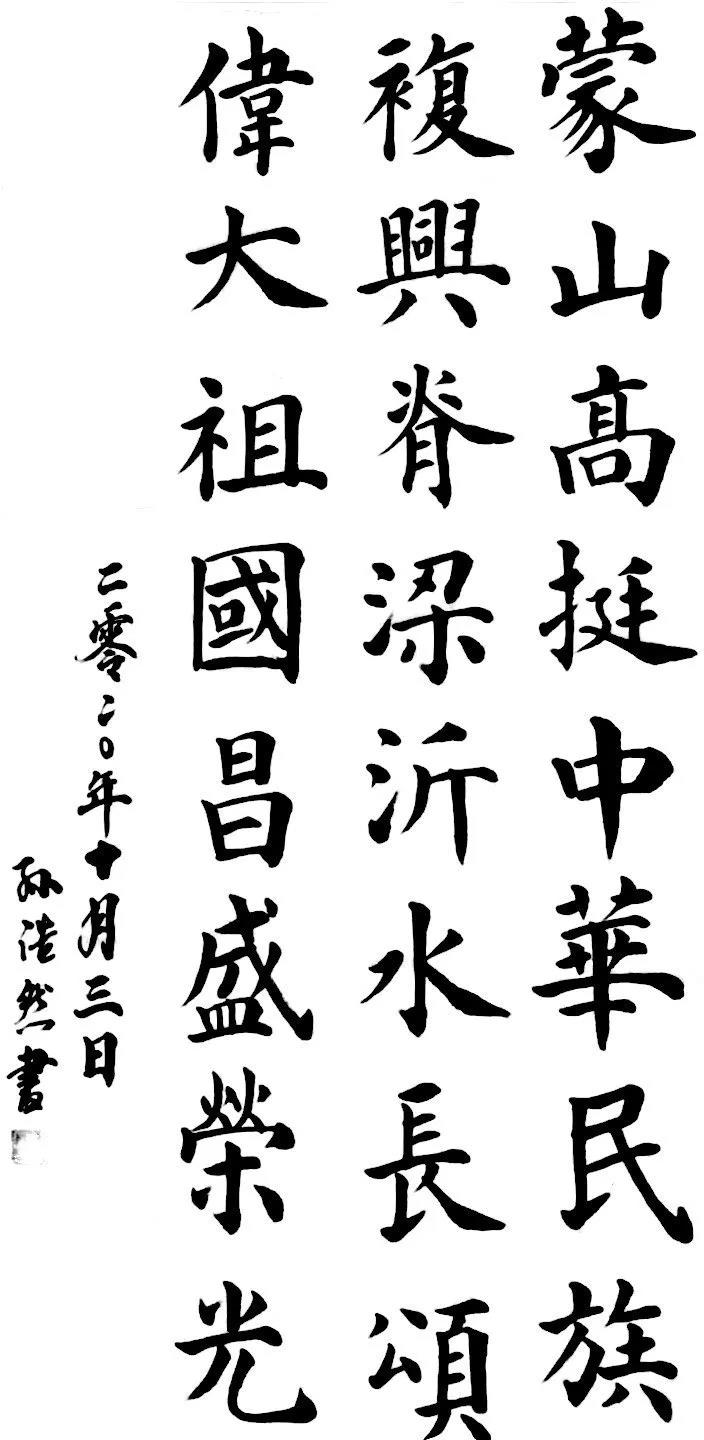 蒙山髙挺中華民族
複興脊梁沂水長頌
偉大祖國昌盛榮光
二零二〇年十月三日
孙浩然書